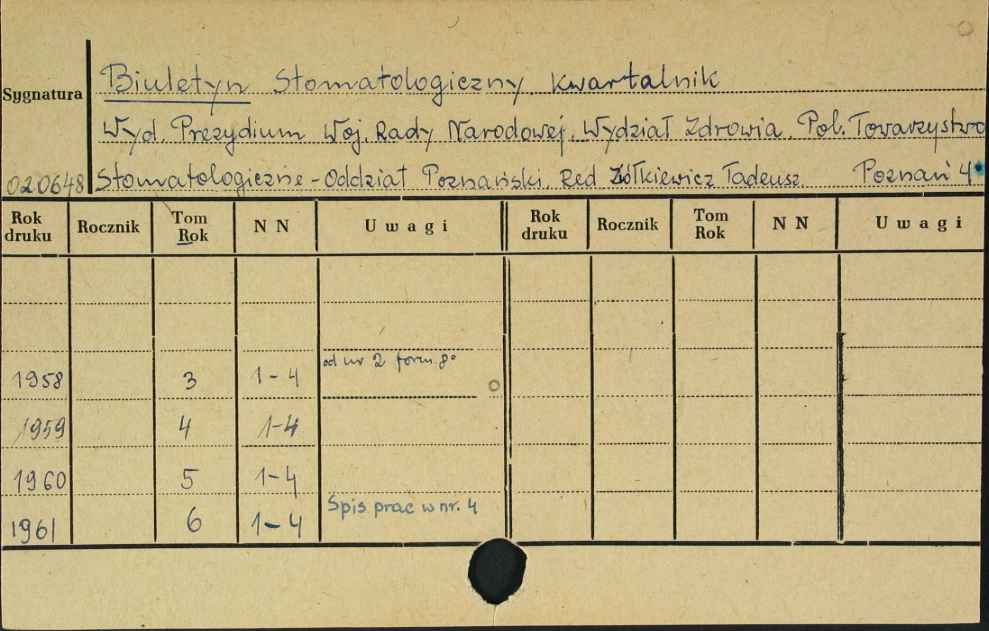 Sygnatura
Biuletyn Stomatologiczny kwartalnik
Wyd. Prezydium Woj. Rady Narodowej. Wydział Zdrowia. Pol. Towarzystwo
020648 Stomatologiczne - Oddział Poznański. Red Żółkiewicz Tadeusz. Poznań 4°
Rok druku Rocznik Tom Rok NN Uwagi Rok druku Rocznik Tom Rok NN Uwagi
od nr 2 form. 8°
1958 3 1-4
1959 4 1-4
1960 5 1-4
Spis prac w nr. 4
1961 6 1-4